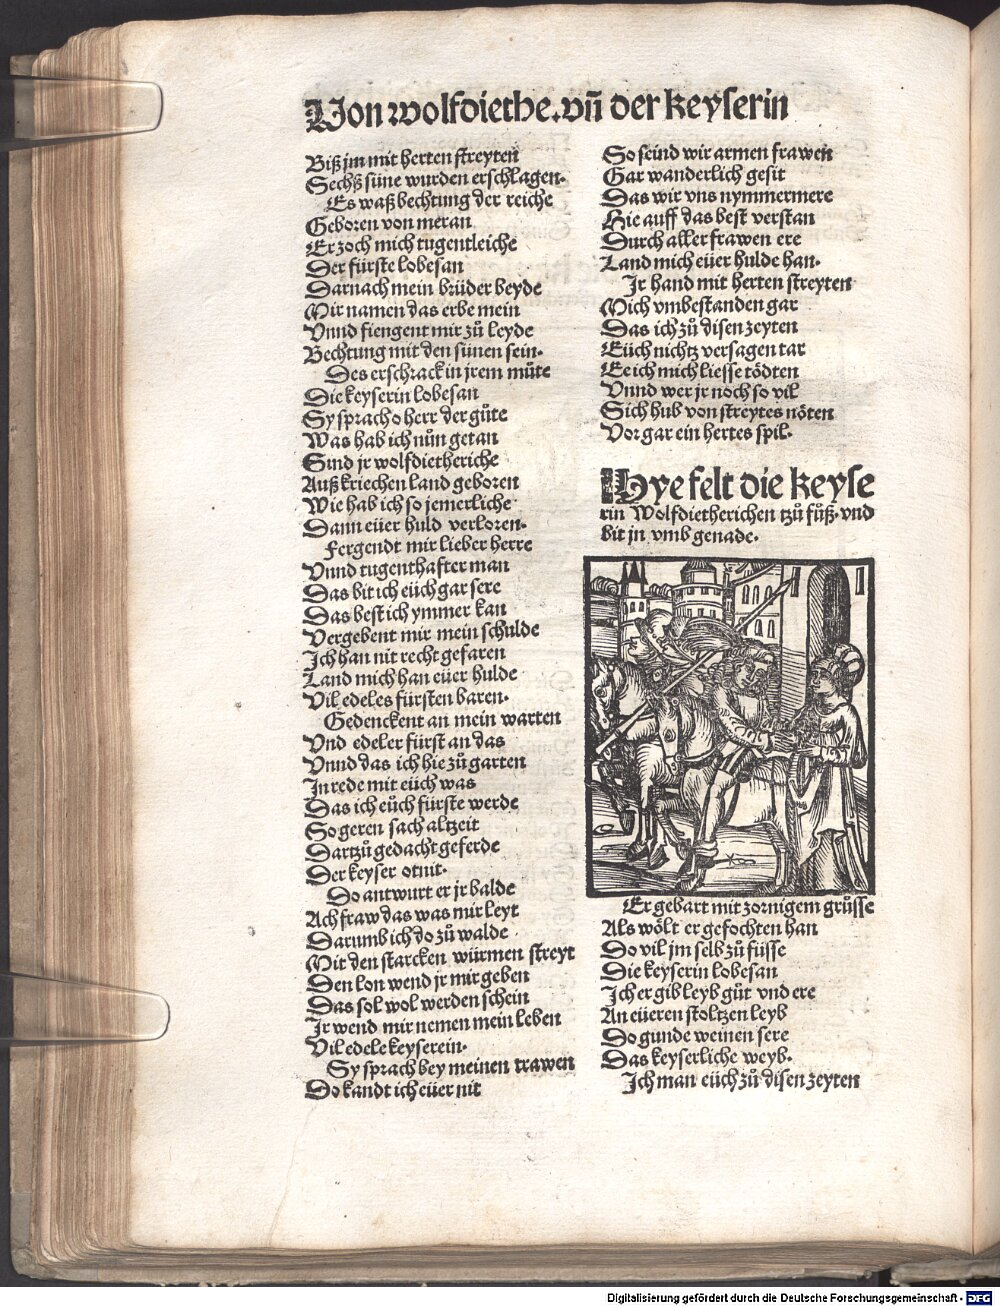 Von wolfdiethe. vñ der keyserin
Biß jm mit herten streyten
Sechß süne wurden erschlagen.
Es waß bechtung der reiche
Geboren von meran
Er zoch mich tugentleiche
Der fürste lobesan
Darnach mein brüder beyde
Mir namen das erbe mein
Vnnd fiengent mir zů leyde
Bechtung mit den sünen sein.
Des erschrack in jrem můte
Die keyserin lobesan
Sy sprach o herr der gůte
Was hab ich nům getan
Sind jr wolfdietheriche
Auß kriechen land geboren
Wie hab ich so jemerliche
Dann eüer huld verloren.
Fergendt mir lieber herre
Vnnd tugenthafter man
Das bit ich eüch gar sere
Das best ich ymmer kan
Vergebent mir mein schulde
Ich han nit recht gefaren
Land mich han eüer hulde
Vil edeles fürsten baren.
Gedenckent an mein warten
Vnd edeler fürst an das
Vnnd das ich hie zů garten
In rede mit eüch was
Das ich eüch fürste werde
So geren sach altzeit
Dartzů gedacht geferde
Der keyser otnit.
Do antwurt er jr balde
Ach fraw das was mir leyt
Darumb ich do zů walde
Mit den starcken würmen streyt
Den lon wend jr mir geben
Das sol wol werden schein
Ir wend mir nemen mein leben
Vil edele keyserein.
Sy sprach bey meinen trawen
Do kandt ich eüer nit
So seind wir armen frawen
Gar wanderlich gesit
Das wir vns nymmermere
Hie auff das best verstan
Durch aller frawen ere
Land mich eüer hulde han.
Ir hand mit herten streyten
Mich vmbestanden gar
Das ich zů disen zeyten
Eüch nichtz versagen tar
Ee ich mich liesse tödten
Vnnd wer jr noch so vil
Sich hub von streytes nöten
Vor gar ein hertes spil.
Hye felt die keyse
rin Wolfdietherichen tzů fůß. vnd
bit jn vmb genade.
Er gebart mit zornigem grůsse
Als wölt er gefochten han
Do vil jm selb zů füsse
Die keyserin lobesan
Ich ergib leyb gůt vnd ere
An eüeren stoltzen leyb
Do gunde weinen sere
Das keyserliche weyb.
Ich man eüch zů disen zeyten
Digitalisierung gefördert durch die Deutsche Forschungsgemeinschaft - DFG